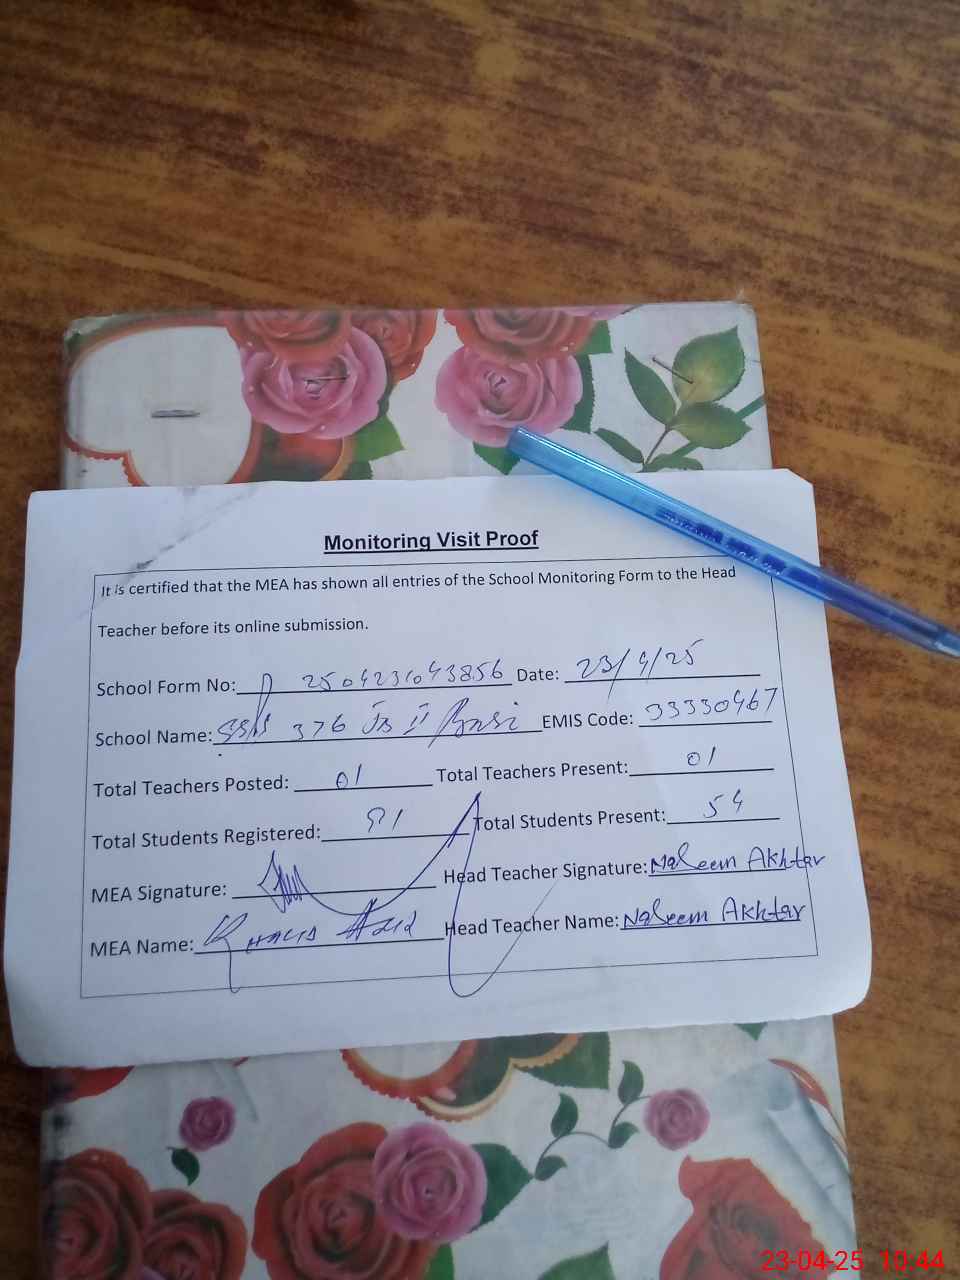 Monitoring Visit Proof
It is certified that the MEA has shown all entries of the School Monitoring Form to the Head
Teacher before its online submission.
School Form No: 2504231043856 Date: 23/4/25
School Name: 376 JB II EMIS Code: 33330467
Total Teachers Posted: 01 Total Teachers Present: 01
Total Students Registered: Total Students Present: 54
MEA Signature: Head Teacher Signature: Naseem Akhtar
MEA Name: Khalid Head Teacher Name: Naseem Akhtar
23-04-25 10:44